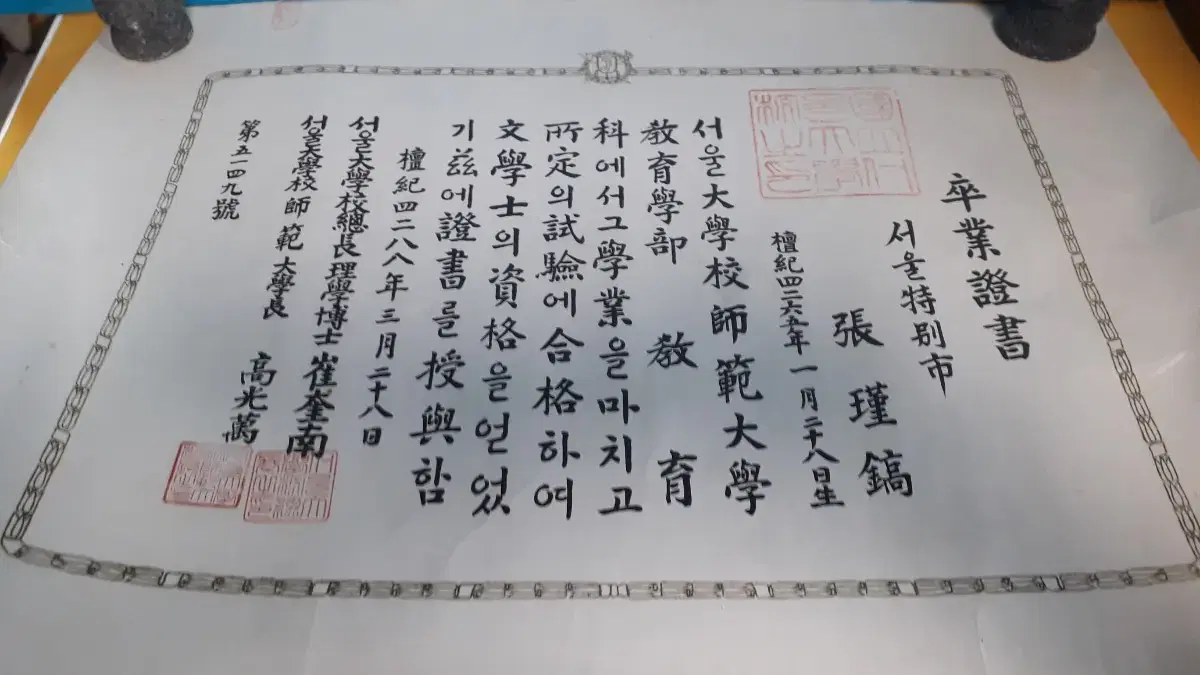 卒業證書
서울特別市
張瑾鎬
檀紀四二六五年一月二十八日生
서울大學校師範大學
敎育學部 敎育
科에서그學業을마치고
所定의試驗에合格하여
文學士의資格을얻었
기玆에證書를授與함
檀紀四二八八年三月二十八日
서울大學校總長理學博士崔奎南
서울大學校師範大學長 高光萬
第五一四九號